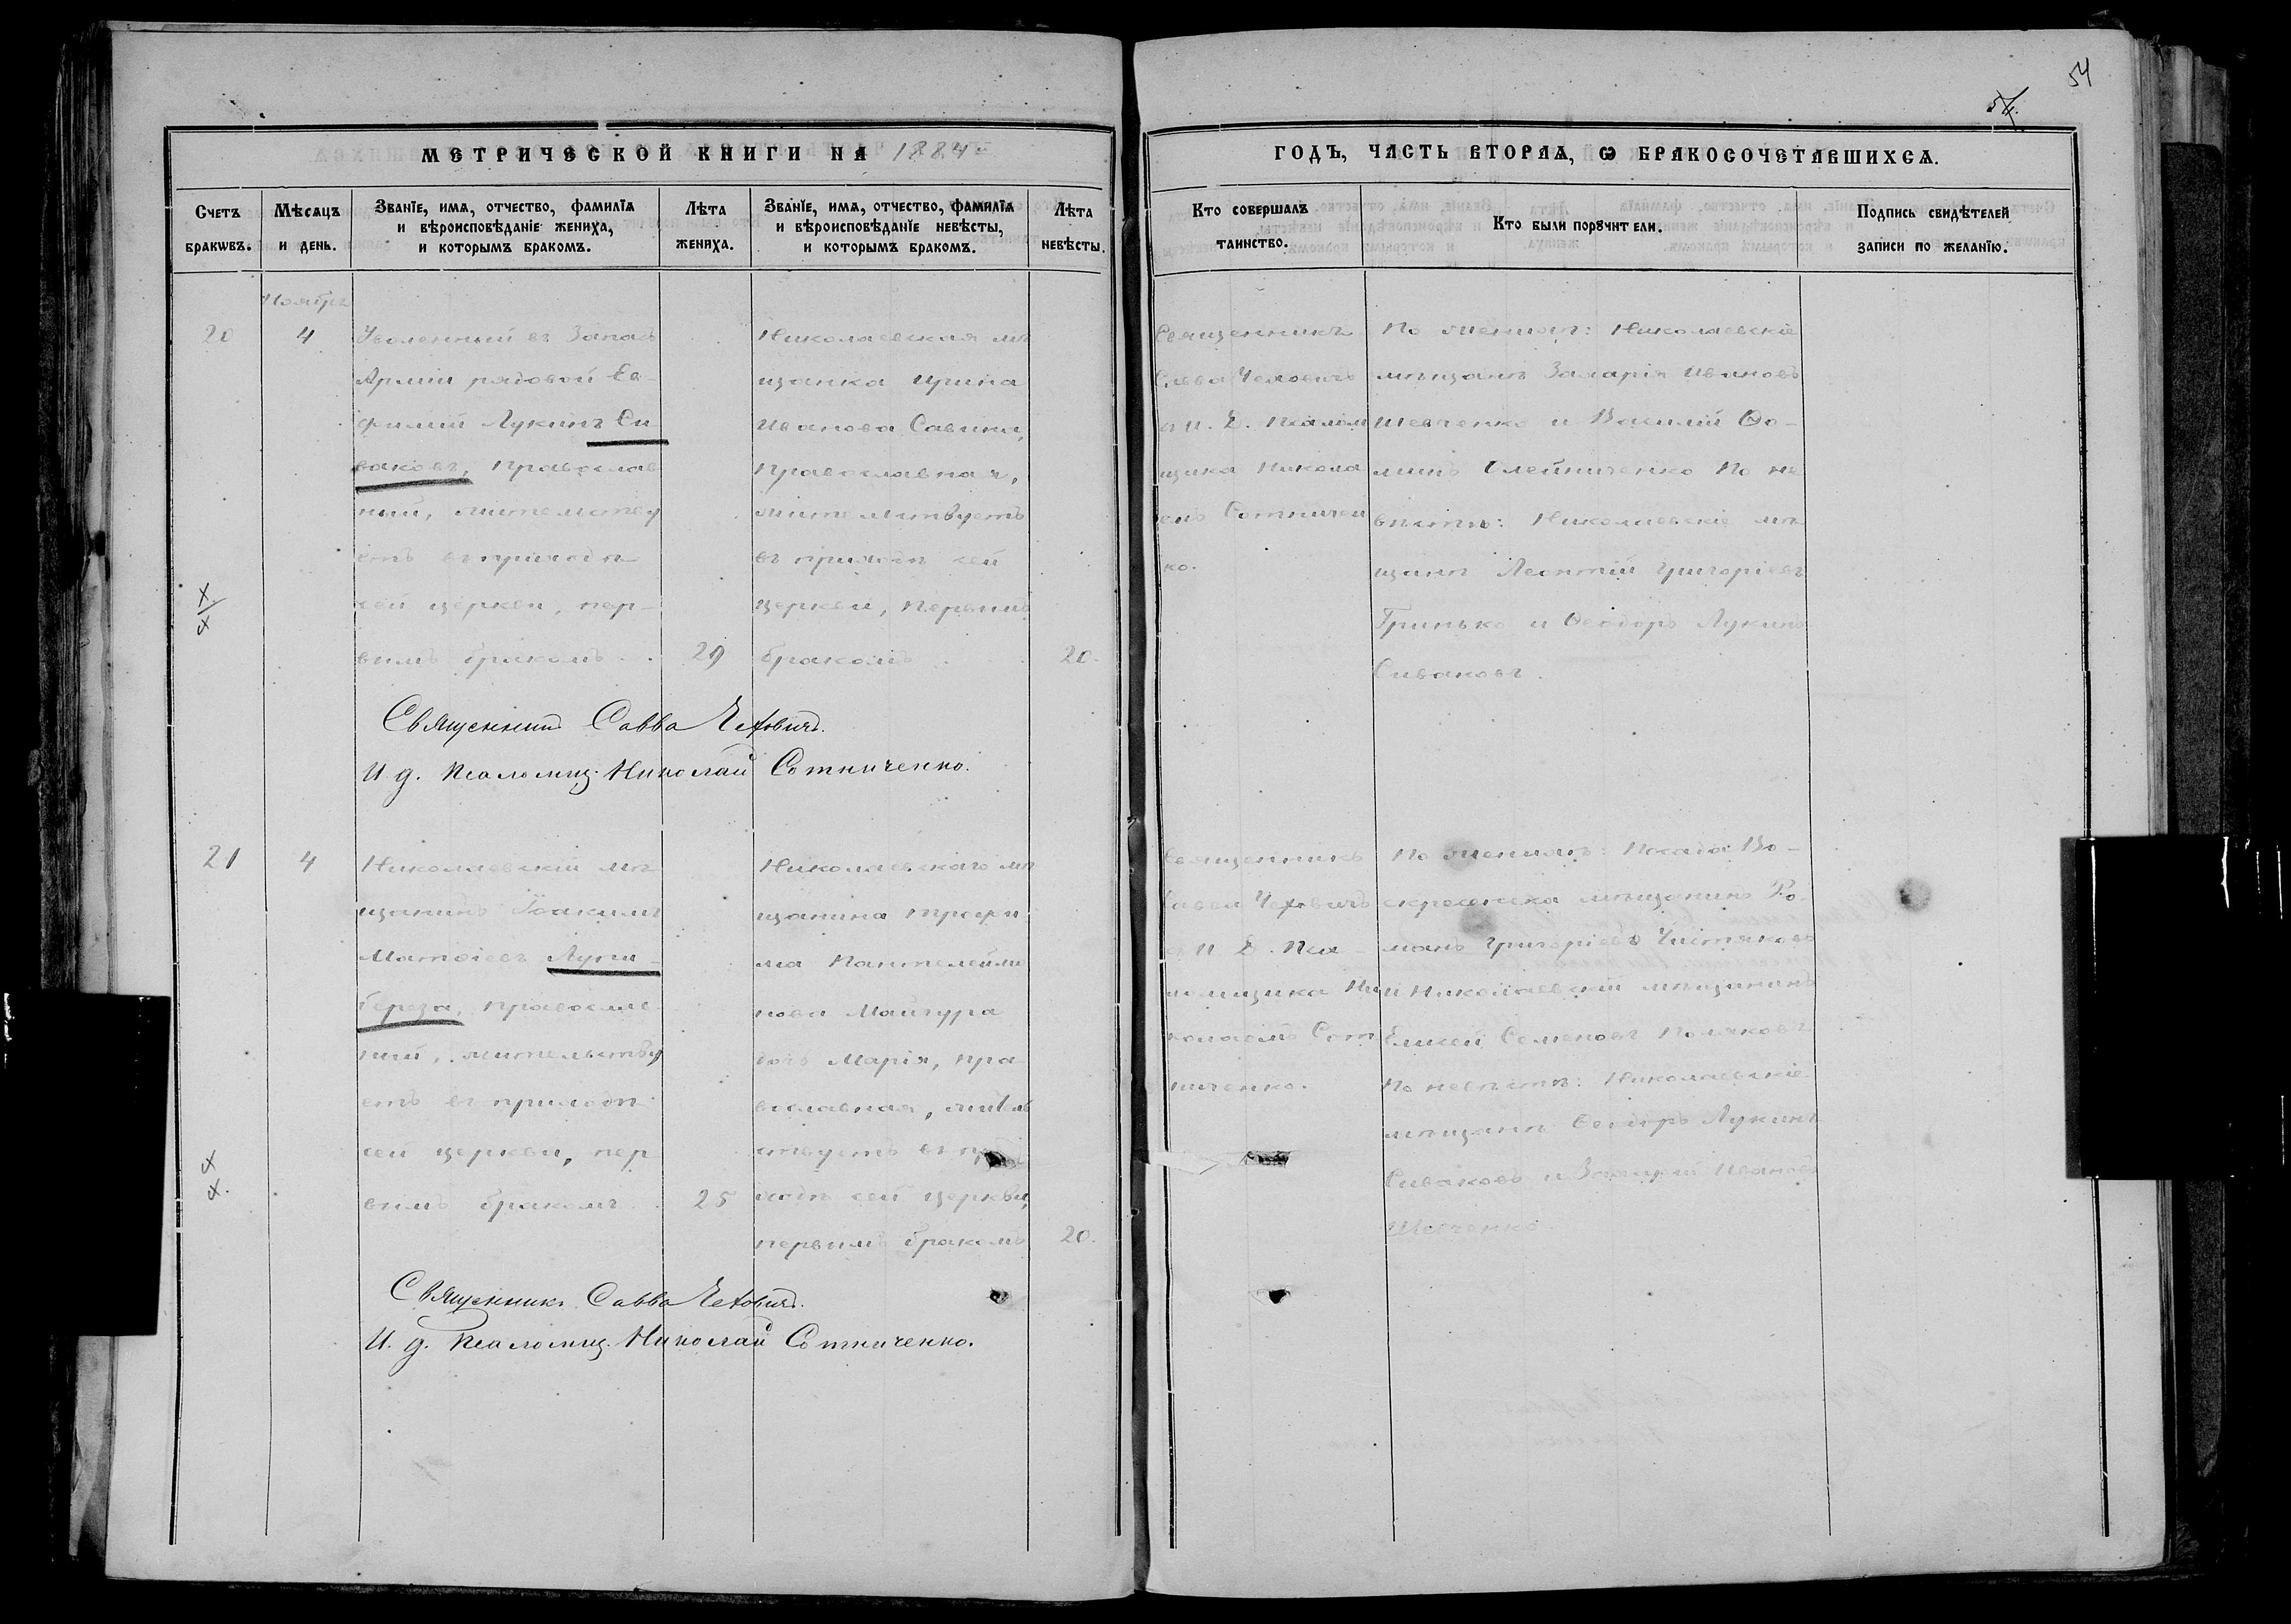 54
54.
МЕТРИЧЕСКОЙ КНИГИ НА 1884
ГОДЪ, ЧАСТЬ ВТОРАѦ, Ѡ БРАКОСОЧЕТАВШИХСѦ.
Счетъ браковъ.
Мѣсѧцъ и день.
Званїе, имѧ, отчество, фамилїѧ
и вѣроисповѣданїе жениха,
и которымъ бракомъ.
Лѣта
жениха.
Званїе, имѧ, отчество, фамилїѧ
и вѣроисповѣданїе невѣсты,
и которымъ бракомъ.
Лѣта
невѣсты.
Кто совершалъ
таинство.
Кто были порꙋчители.
Подпись свидѣтелей
записи по желанїю.
Ноябрь
20
4
Уволенный въ Запасъ
Арміи рядовой Ев-
фимій Лукинъ Си
ваковъ, Православ
ный, жительству
етъ въ приходѣ
сей церкви, пер-
вымъ бракомъ
29
Николаевская мѣ
щанка Ирина
Иванова Савина,
Православная,
жительствуетъ
въ приходѣ сей
церкви, Первымъ
бракомъ
20.
Священникъ
Савва Чехович
с И. Д. Псалом
щика Никола
емъ Сотничен
ко.
По женихѣ: Николаевскіе
мѣщане Захарія Ивановъ
Шевченко и Василій Ѳо-
минъ Олейниченко По не
вѣстѣ: Николаевскіе мѣ
щане Леонтій Григоріевъ
Гринько и Ѳеодоръ Лукинъ
Сиваковъ.
Священник Савва Чехович.
И д. Псаломщ. Николай Сотниченко.
21
4
Николаевскій мѣ
щанинъ Іоакимъ
Матѳіевъ Лупи-
береза, Православ
ный, жительству
етъ въ приходѣ
сей церкви, пер
вымъ бракомъ
25
Николаевскаго мѣ
щанина Трофи
ма Пантелеймо
нова Майгура
дочь Марія, пра
вославная, житель
ствуетъ въ при
ходѣ сей церкви,
первымъ бракомъ
20.
Священникъ
Савва Чеховичъ
с И. Д. Пса-
ломщика Ни
колаемъ Сот
ниченко.
По женихѣ: Посада Во-
скресенска мѣщанинъ Ро-
манъ Григоріевъ Чистяковъ
и Николаевскій мѣщанинъ
Елисей Семеновъ Поляковъ
По невѣстѣ: Николаевскіе
мѣщане Ѳеодоръ Лукинъ
Сиваковъ и Захарій Ивановъ
Шевченко.
Священникъ Савва Чехович.
И. д. Псаломщ. Николай Сотниченко.